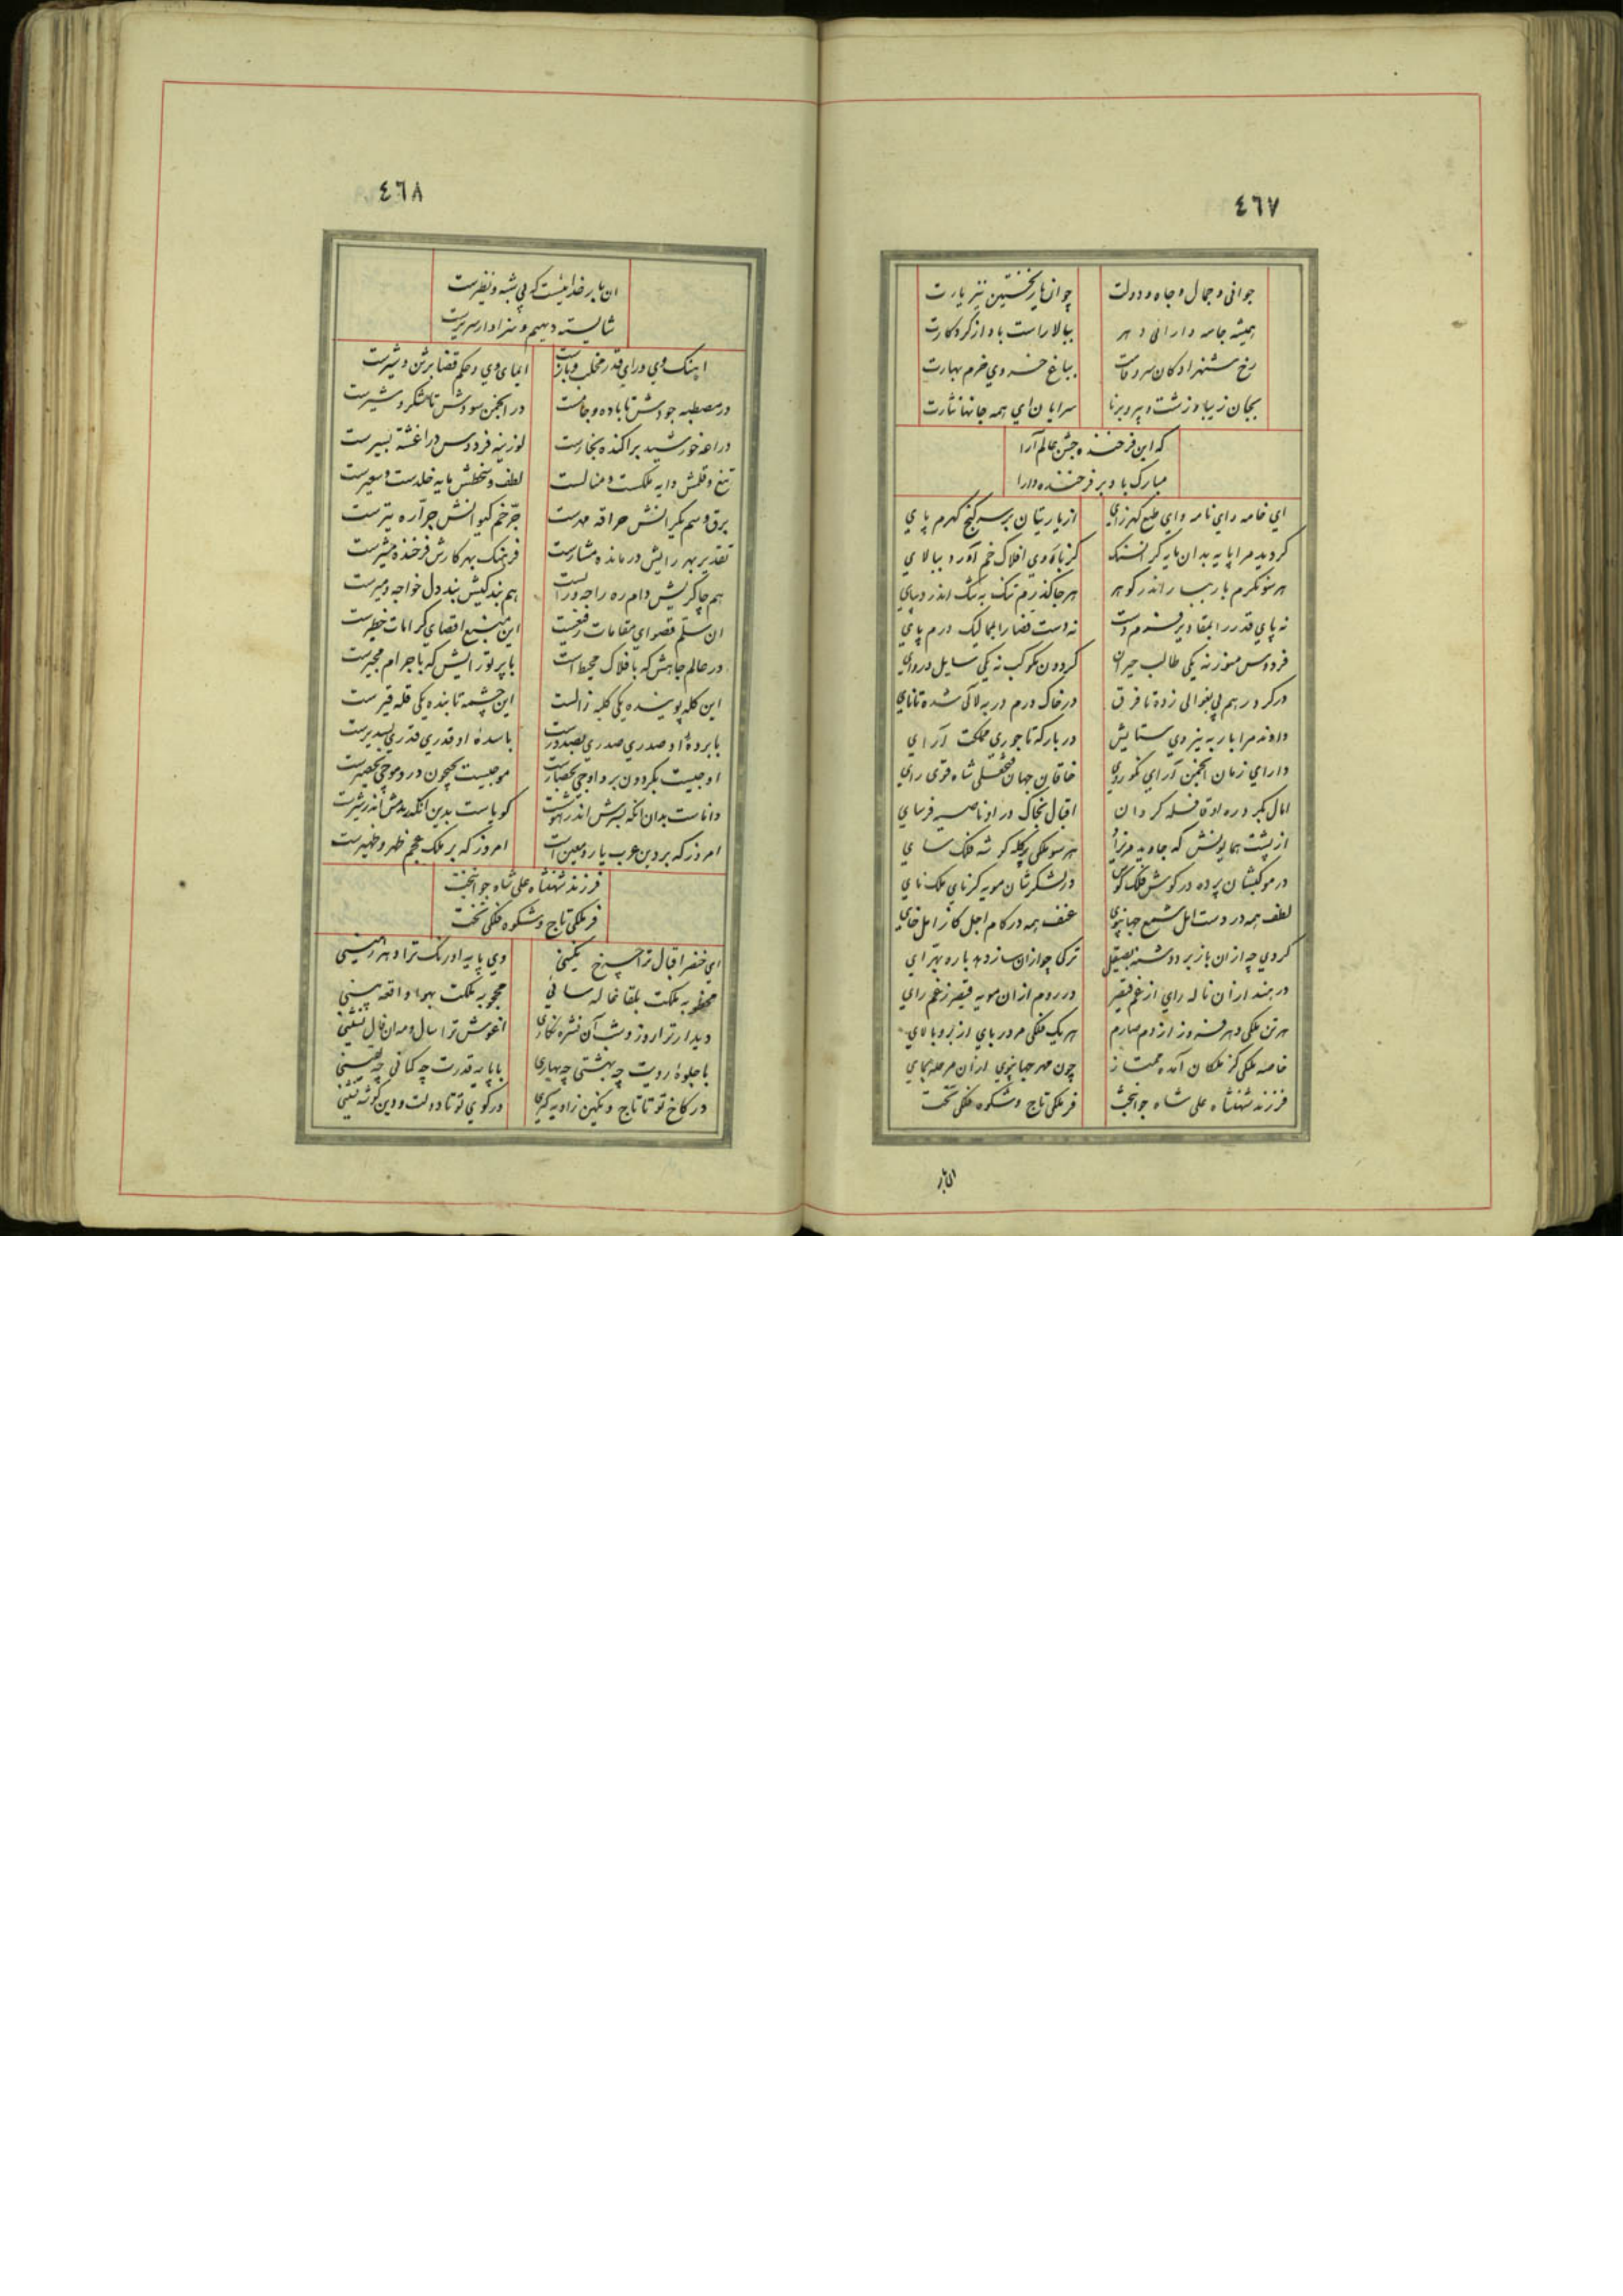 ٤٦٧
جوانی و جمال و جاه و دولت چو آن یار نخستین نیز یارت
همیشه جامه دارائی دهر ببالا راست باد از کردکارت
رخ شهزادکان سرو قامت بباغ خسروی خرم بهارت
بجان زیبا و زشت و پیر و برنا سرایان ای همه جانها نثارت
که این فرخنده جشن عالم آرا
مبارک باد بر فرخنده دارا
ای خامه و ای نامه و ای طبع کهرزای از یاریتان بر سر کنج کهرم پای
کردید مرا پایه بدان مایه کرانسنک کز بازوی افلاک خم آورد ببالای
هر سو نکرم بار ببار اندر کوهر هر جا کذرم تنک به تنک اندر دیبای
نه پای قدر را بمقادیر فزوم دست نه دست قضا را بممالیک درم پای
فردوس منور نه یکی طالب حیران کردون مکوکب نه یکی سایل دروای
در کرد رهم بی بغوالی زده تا فرق در خاک درم در به لآلی شده تا نای
داوند مرا بار به نیروی ستایش در بارکه تاجوری مملکت آرای
دارای زمان انجمن آرای نکوروی خاقان جهان فتحعلی شاه قوی رای
امال بکرد ره او قافله کردان اقبال بخاک در او ناصیه فرسای
از پشت همایونش که جاوید مریزاد هر سو ملکی بر کله کوشه فلک سای
در موکبشان پرده در کوش فلک کوس در لشکرشان مویه کر نای ملک نای
لطف همه در دست امل شمع جهانجوی عنف همه در کام اجل کاز امل خای
کردی چه از آن بازبر دوشنه بصیقل ترکی چو از آن سازدهد باره بهرای
در هند از آن ناله رای از غم قیصر در روم از آن مویه قیصر ز غم رای
هر تن ملکی دهر فروز از دم صارم هر یک فلکی مهر در بای از بر و بالای
خاصه ملکی کز ملکان آمده ممتاز چون مهر جهانجوی از آن مرحله پیمای
فرزند شهنشاه علی شاه جوانبخت فر ملکی تاج و شکوه فلکی تخت
ان بار
٤٦٨
ان بار خدائیست که بی شبه و نظیرست
شایسته دیهیم و سزاوار سریرست
اهنک وی و رای قدر مخلب و بازست ایمای وی و حکم قضا برثن و شیرست
در مصطبه جودش تا باده و جامست در انجمن سودش تا شکر و شیرست
دراعه خورشید براکنده بخارست لوزینه فردوس در اغشته بسیرست
تیغ و قلمش دایه ملکست و منالست لطف و سخطش مایه خلدست و سعیرست
برق و سم یکرانش حراقه و مهدست جرّ خم کیوانش جرّاره و تیرست
تقدیر بهر رایش درمانده مشارست فرهنک بهر کارش فرخنده مشیرست
هم چاکریش دام ره راجه و رایست هم بندکیش بند دل خواجه و میرست
ان سلّم قصوای مقامات رفیعست این منبع اقصای کرامات خطیرست
در عالم جاهش که بافلاک محیط است با پرتو رایش که باجرام مجیرست
این کله پوینده یکی کلبه زالست این چشمه تابنده یکی قله قیرست
با برده او صدری صدری بصدورست با سده او قدری قدری بسدیرست
اوجیست بکردون بر و اوجی بحصارست موجیست بجیحون در و موجی بحصیرست
داناست بدان انکه بسرش اندر هوشست کویاست بدین انکه بدمش اندر شیرست
امروز که بر دین عرب یار و معین است امروز که بر ملک عجم ظهر و ظهیرست
فرزند شهنشاه علی شاه جوانبخت
فر ملکی تاج و شکوه فلکی تخت
ای خضر اقبال ترا چرخ نکینی وی پایه اورنک ترا دهر زمینی
محظوبه ملکت بلقا غالیه سائی محجوبه ملکت بهوا واقعه بینی
دیدار ترا روز و شب آن نشره نکاری اغوش ترا سال و مه ان فال نشینی
با جلوه رویت چه بهشتی چه بهاری با پایه قدرت چه کمانی چه یقینی
در کاخ تو تا تاج و نکین زاویه کیری در کوی تو تا دولت و دین کوشه نشینی